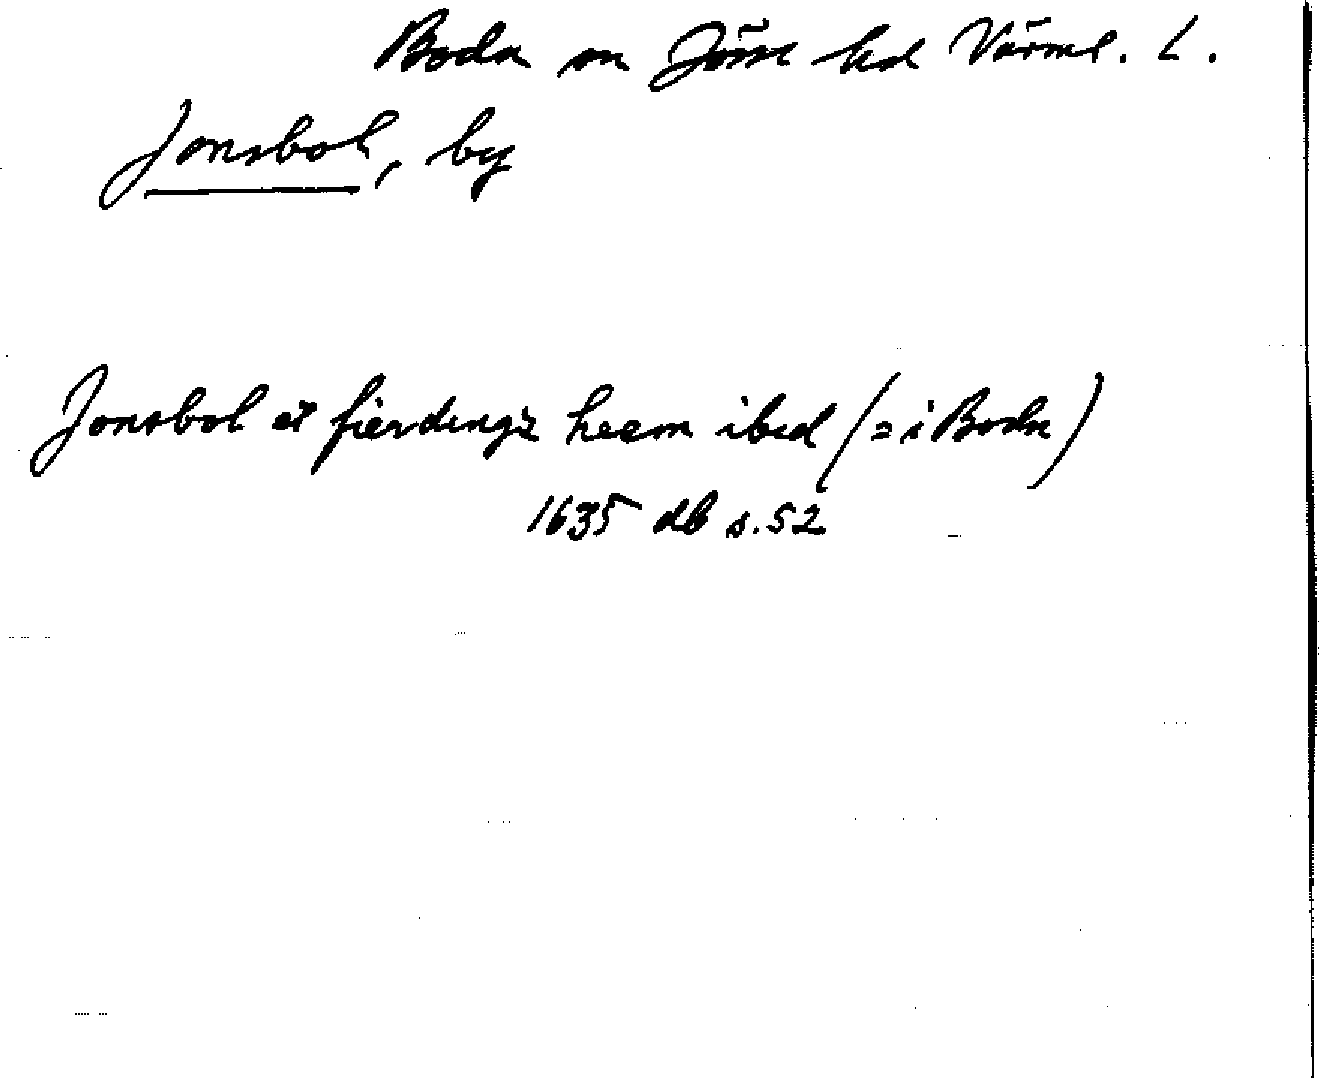 Boda sn Jösse hd Värml. L.
Jonsbol, by
Jonsbol et fierdingz heem ibid (= i Boda)
1635 db s. 52